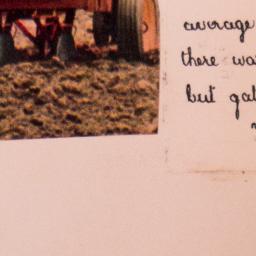 average
there wa
but gat